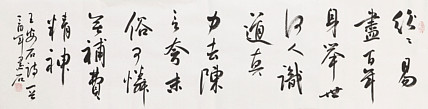 纷々易
盡百年
身举世
何人識
道真
力去陳
言夸末
俗可憐
无補費
精神
王安石詩一首